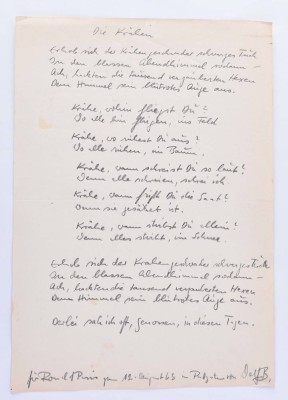 Die Krähen
Erhob sich der Krähengeschwader schwarzes Tuch
In den blassen Abendhimmel
Ach, hackten die tausend Hexen
Dem Himmel sein Auge aus.
Krähe, wohin fliegst Du?
Wo alle hin fliegen, ins Feld
Krähe, wo ruhest Du aus?
Wo alle ruhen, im Baum.
Krähe, warum schreist Du so laut?
Wenn alle schreien, schrei ich.
Krähe, warum frißt Du die Saat?
Wenn sie gesäet ist.
Krähe, wann stirbst Du allein?
Wenn alles stirbt, im Schnee.
Erhob sich des Krähengeschwader schwarzes Tuch
In den blassen Abendhimmel
Ach, hackten die tausend Hexen
Dem Himmel sein Auge aus.
sah ich oft, Genossen, in diesen Tagen.
für am 12. August 63 in